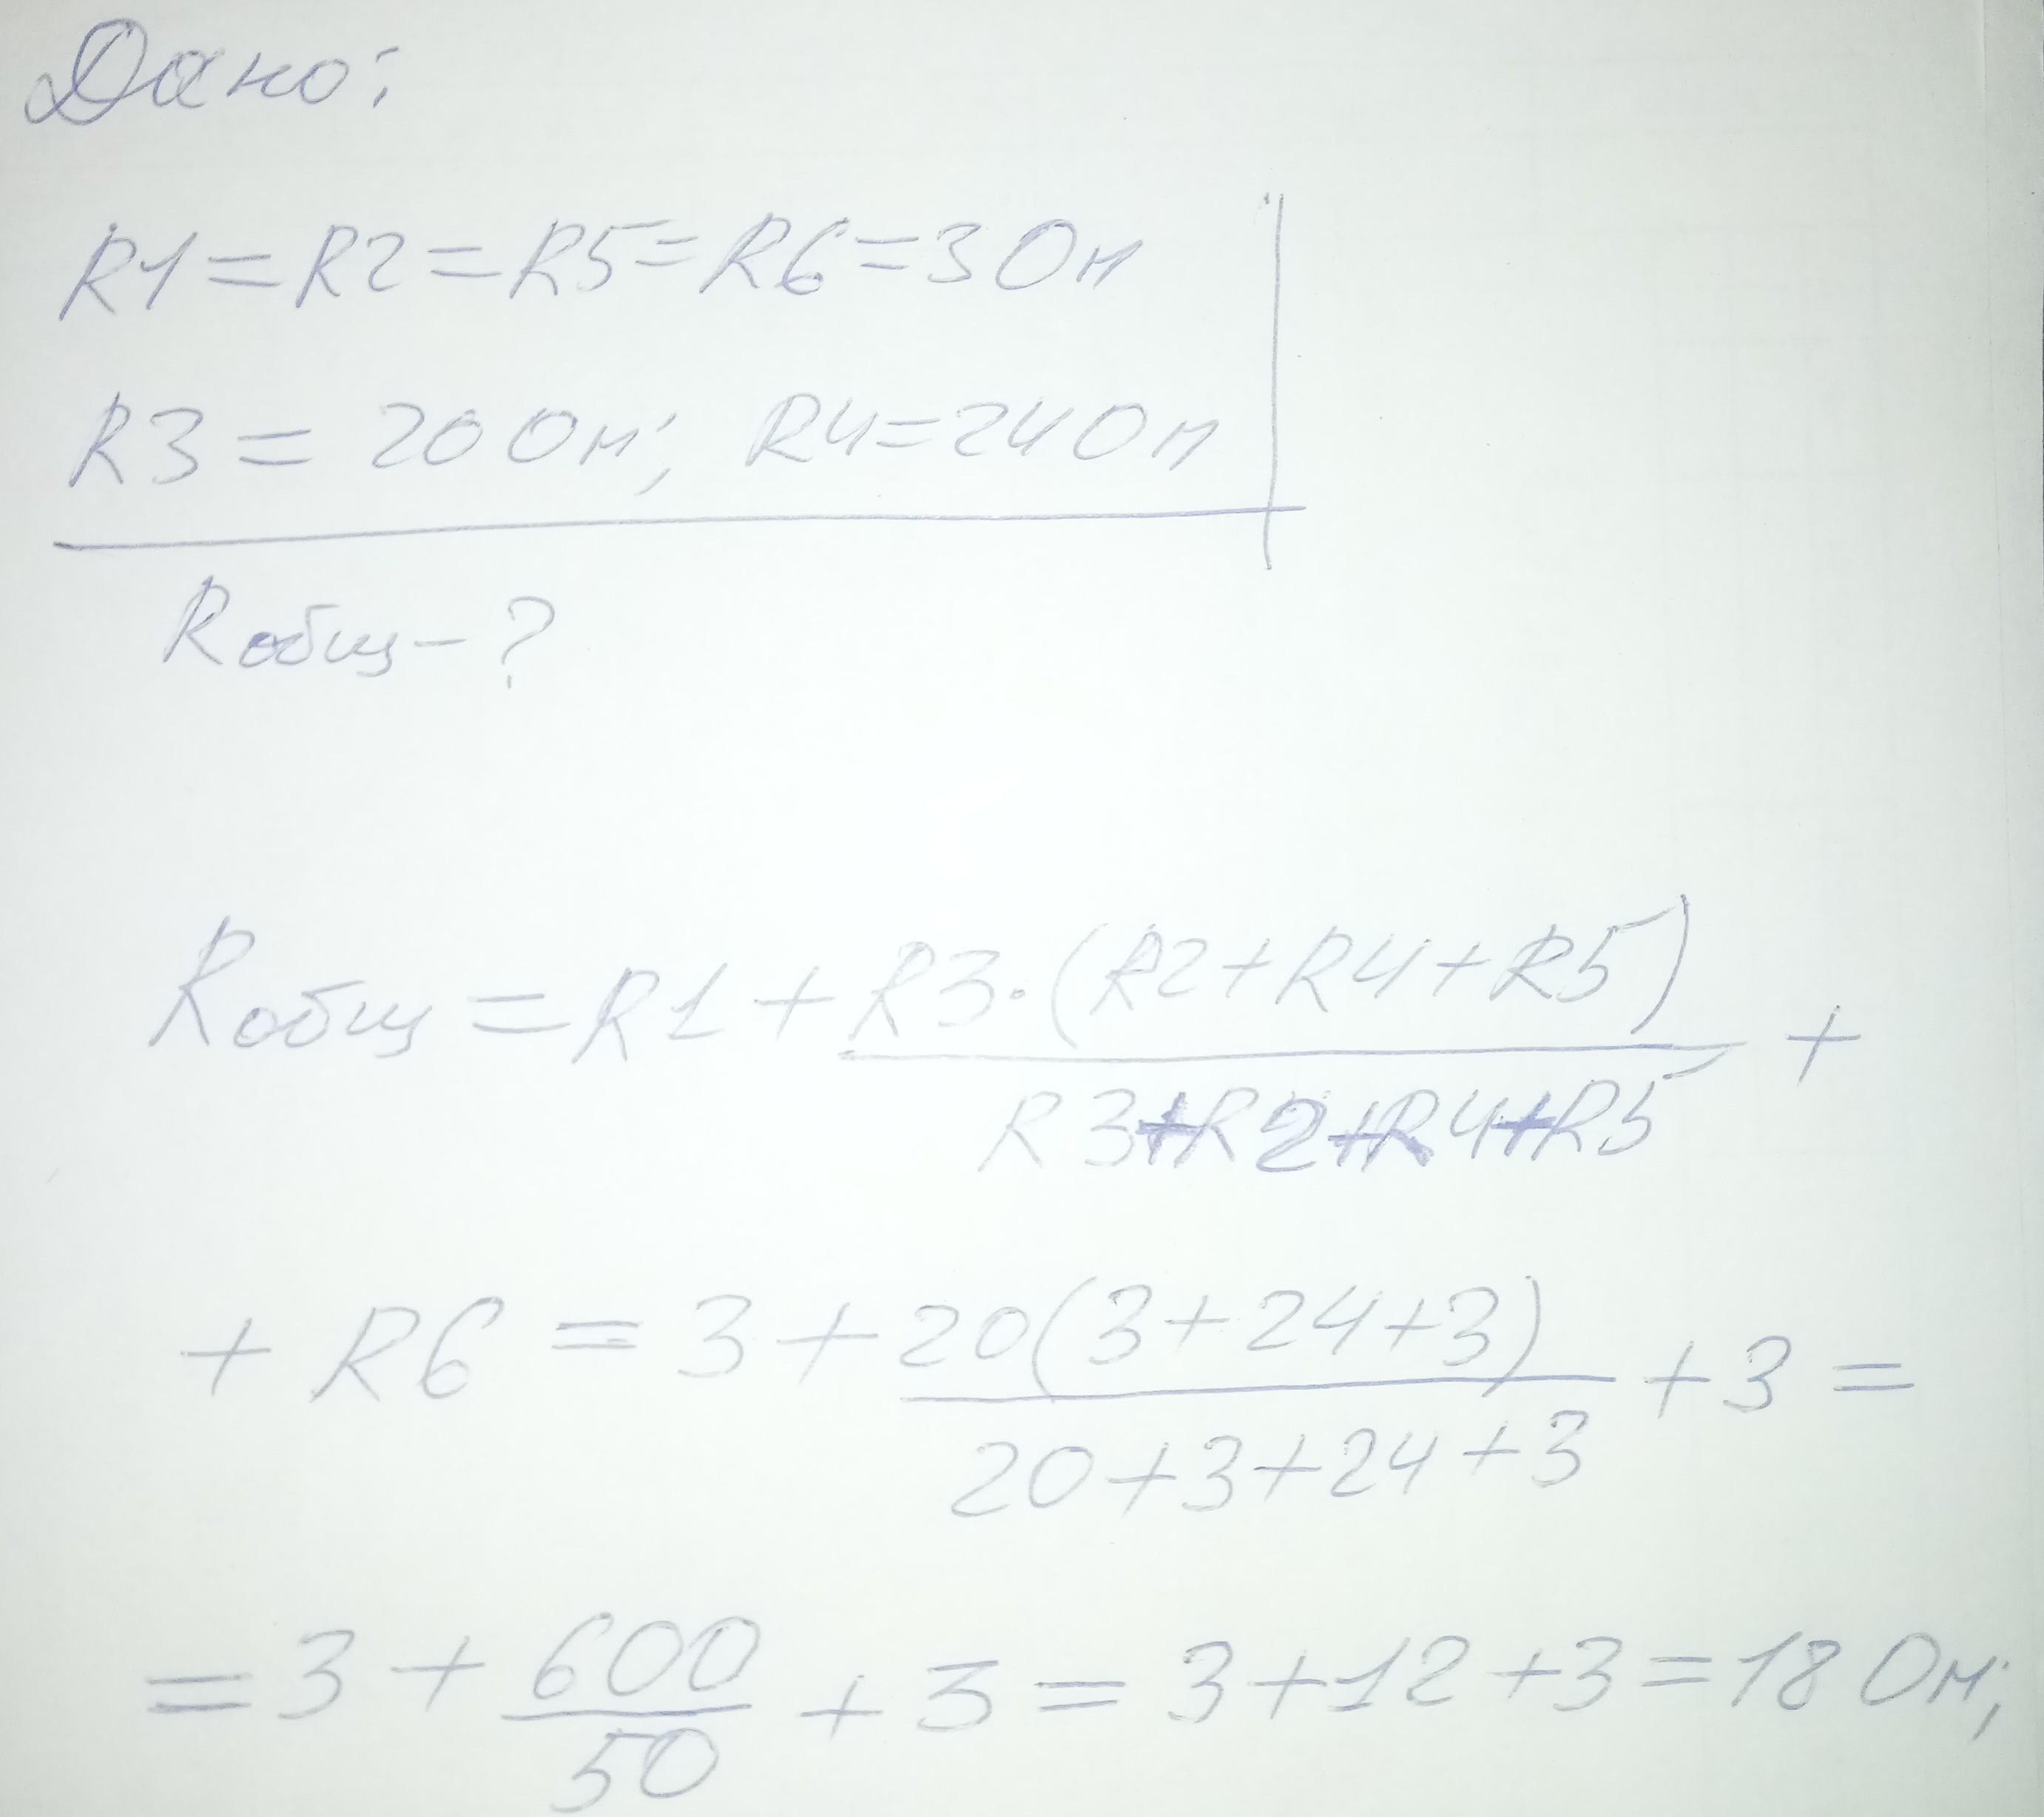 Дано:
R1=R2=R5=R6=3 Ом
R3= 20 Ом; R4=24 Ом
Rобщ-?
Rобщ=R1+R3·(R2+R4+R5)/R3+R2+R4+R5 +
+ R6 = 3+20(3+24+3)/20+3+24+3 +3=
=3+600/50+3=3+12+3=18 Ом;